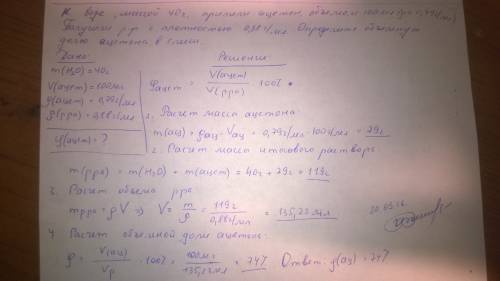 К воде, массой 40г, прилили ацетон, объемом
Получили р-р с плотностью 0,88 г/мл. Определите объемную
долю ацетона в смеси.
Дано:
m(H₂O)=40г
V(ацет)=100мл
ρ(ацет)=0,79г/мл
ρ(рра)=0,88г/мл
φ(ацет)=?
Решение:
φацет = V(ацет)/V(рра) · 100%
1. Расчет массы ацетона:
m(ац)=ρац·Vац = 0,79г/мл·100мл = 79г
2. Расчет массы итогового раствора
m(рра) = m(H₂O) + m(ацет) = 40г + 79г = 119г
3. Расчет объема рра
mрра = ρV ⇒ V = m/ρ = 119г/0,88г/мл = 135,23 мл
4 Расчет объемной доли ацетона:
φ = V(ац)/Vр · 100% = 100мл/135,23мл = 74% Ответ: φ(ац) = 74%